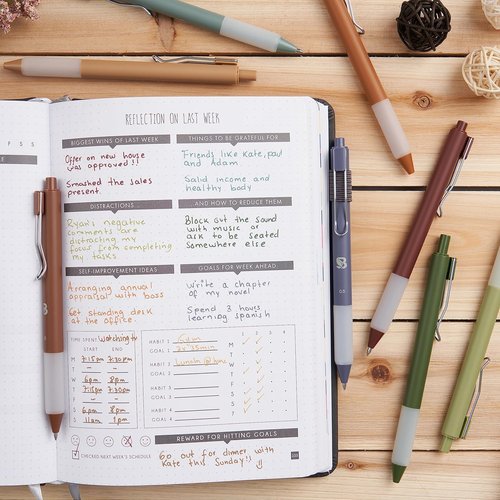 F S S
REFLECTION ON LAST WEEK
BIGGEST WINS OF LAST WEEK
THINGS TO BE GRATEFUL FOR
Offer on new house
was approved!!
Smashed the sales
present.
Friends like Kate, paul
and Adam.
Salid income and
healthy body
DISTRACTIONS
AND HOW TO REDUCE THEM
Ryan's negative
comments are
distracting my
focus from completing
my tasks.
Block out the sound
with music or
ask to be seated
somewhere else
SELF-IMPROVEMENT IDEAS
GOALS FOR WEEK AHEAD
Arranging annual
appraisal with boss
Get standing desk
at the office.
Write a chapter
of my novel
Spend 3 hours
learning spanish
TIME SPENT Watching tv
START END
M 7:15pm 7:30pm
T
W 6pm 8pm
T 7:15pm 7:30pm
F
S 6pm 8pm
S 11am 1pm
HABIT 1 Gym
GOAL 1
HABIT 2
GOAL 2
HABIT 3
GOAL 3
HABIT 4
GOAL 4
1 2 3 4
M
T
W
T
F
S
S
CHECKED NEXT WEEK'S SCHEDULE
REWARD FOR HITTING GOALS
Go out for dinner with
Kate this Sunday!
0.5